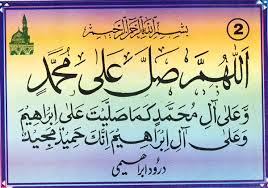 بِسْمِ اللهِ الرَّحْمٰنِ الرَّحِيْمِ
2
اَللّٰهُمَّ صَلِّ عَلٰى مُحَمَّدٍ
وَّعَلٰى اٰلِ مُحَمَّدٍ كَمَا صَلَّيْتَ عَلٰى اِبْرَاهِيْمَ
وَعَلٰى اٰلِ اِبْرَاهِيْمَ اِنَّكَ حَمِيْدٌ مَّجِيْدٌ
درود ابراہیمی